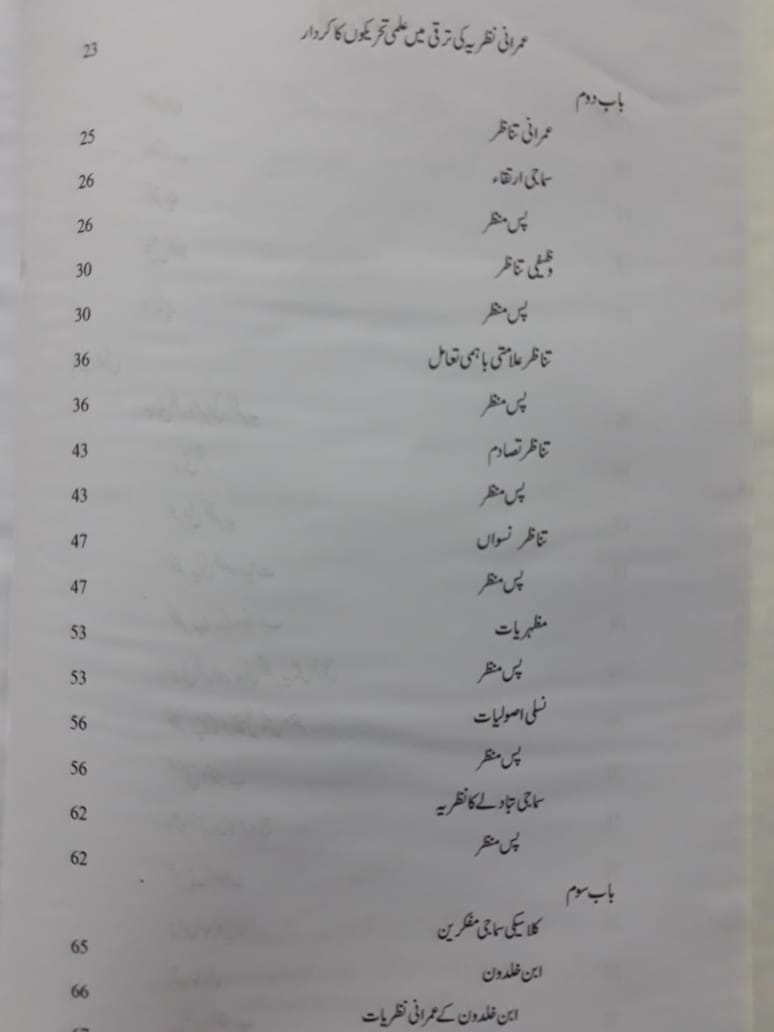 عمرانی نظریہ کی ترقی میں علمی تحریکوں کا کردار 23
باب دوم
عمرانی تناظر 25
سماجی ارتقاء 26
پس منظر 26
وظیفی تناظر 30
پس منظر 30
تناظر علامتی باہمی تعامل 36
پس منظر 36
تناظر تصادم 43
پس منظر 43
تناظر نسواں 47
پس منظر 47
مظہریات 53
پس منظر 53
نسلی اصولیات 56
پس منظر 56
سماجی تبادلے کا نظریہ 62
پس منظر 62
باب سوم
کلاسیکی سماجی مفکرین 65
ابن خلدون 66
ابن خلدون کے عمرانی نظریات